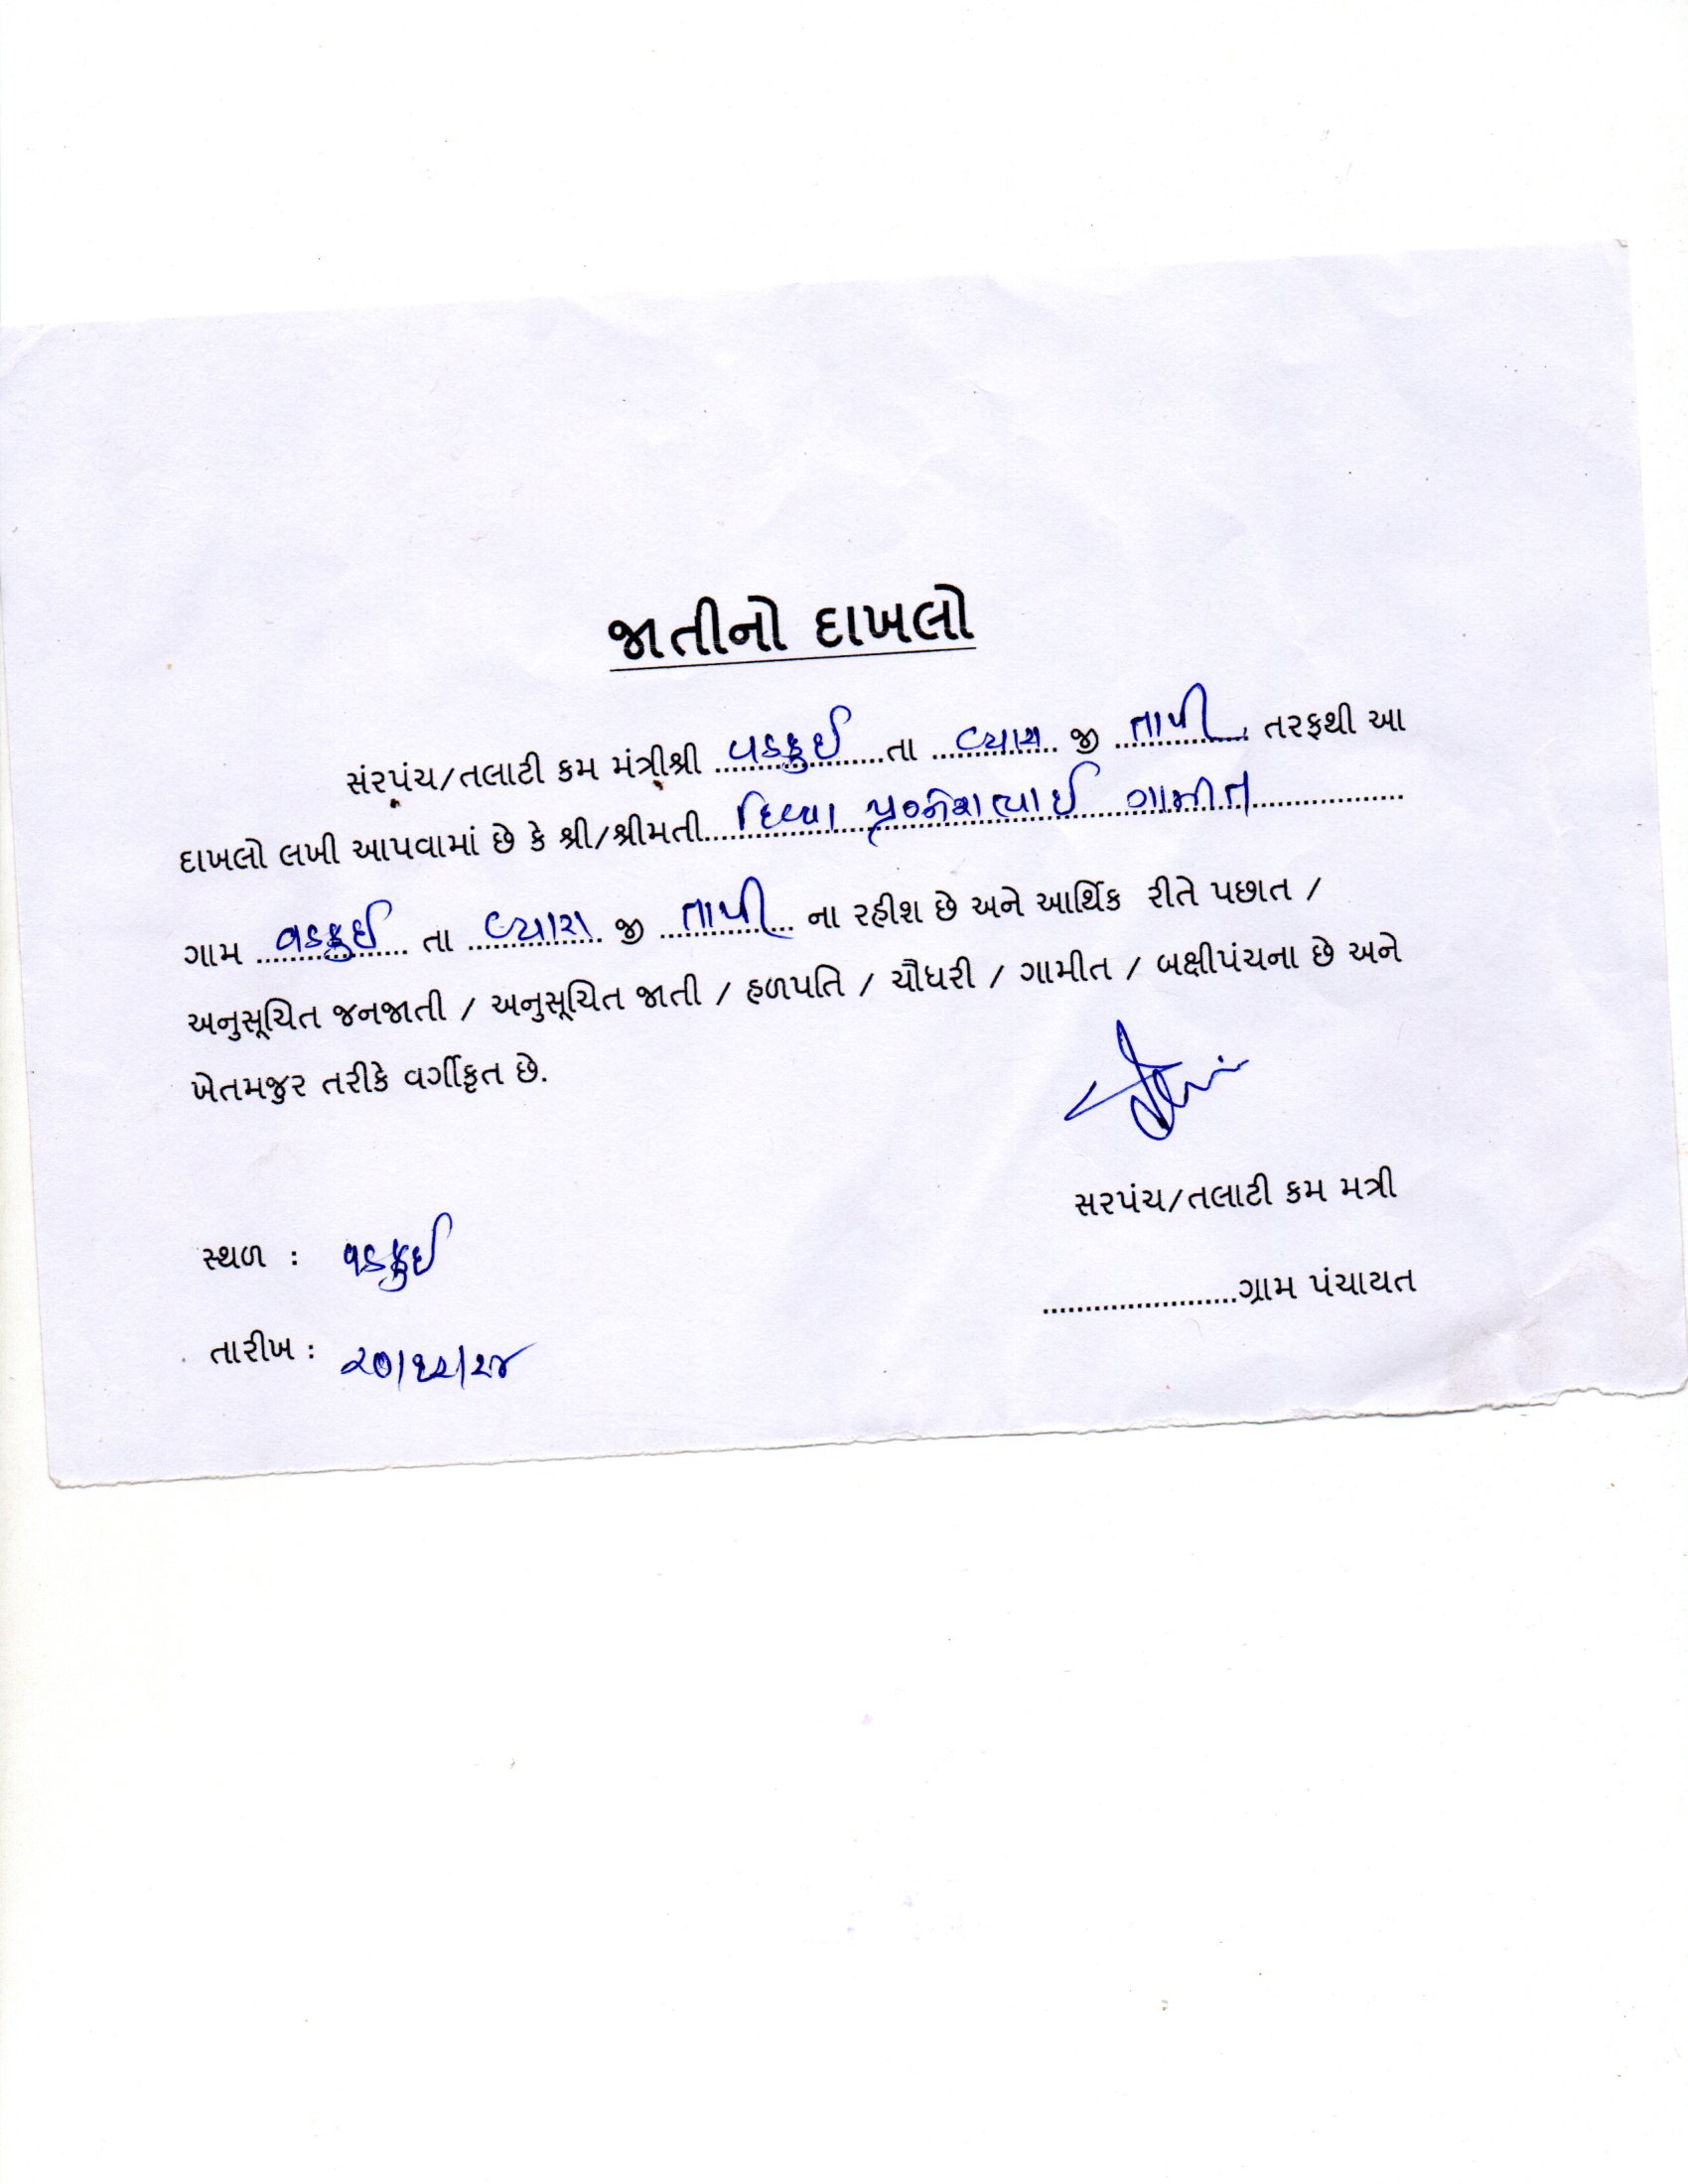 જાતીનો દાખલો
સંરપંચ/તલાટી કમ મંત્રીશ્રી વડકુઈ તા વ્યારા જી તાપી તરફથી આ
દાખલો લખી આપવામાં છે કે શ્રી/શ્રીમતી દિવ્યા પ્રજ્ઞેશભાઈ ગામીત
ગામ વડકુઈ તા વ્યારા જી તાપી ના રહીશ છે અને આર્થિક રીતે પછાત /
અનુસૂચિત જનજાતી / અનુસૂચિત જાતી / હળપતિ / ચૌધરી / ગામીત / બક્ષીપંચના છે અને
ખેતમજુર તરીકે વર્ગીકૃત છે.
સરપંચ/તલાટી કમ મત્રી
સ્થળ : વડકુઈ
ગ્રામ પંચાયત
તારીખ : ૨૦/૧૨/૨૪